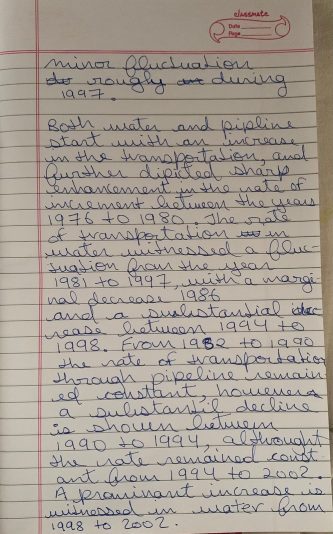 classmate
Date
Page
minor fluctuation
roughly during
1997.
Both water and pipline
start with an increase
in the transportation, and
further dipited sharp
enhancement in the rate of
increment between the years
1976 to 1980. The rate
of transportation in
water witnessed a fluc-
tuation from the year
1981 to 1997, with a margi
nal decrease 1986
and a substantial dec
rease between 1994 to
1998. From 1982 to 1990
the rate of transportation
through pipeline remain
ed constant, however
a substantil decline
is shown between
1990 to 1994, althought
the rate remained const
ant from 1994 to 2002.
A prominant increase is
witnessed in water from
1998 to 2002.